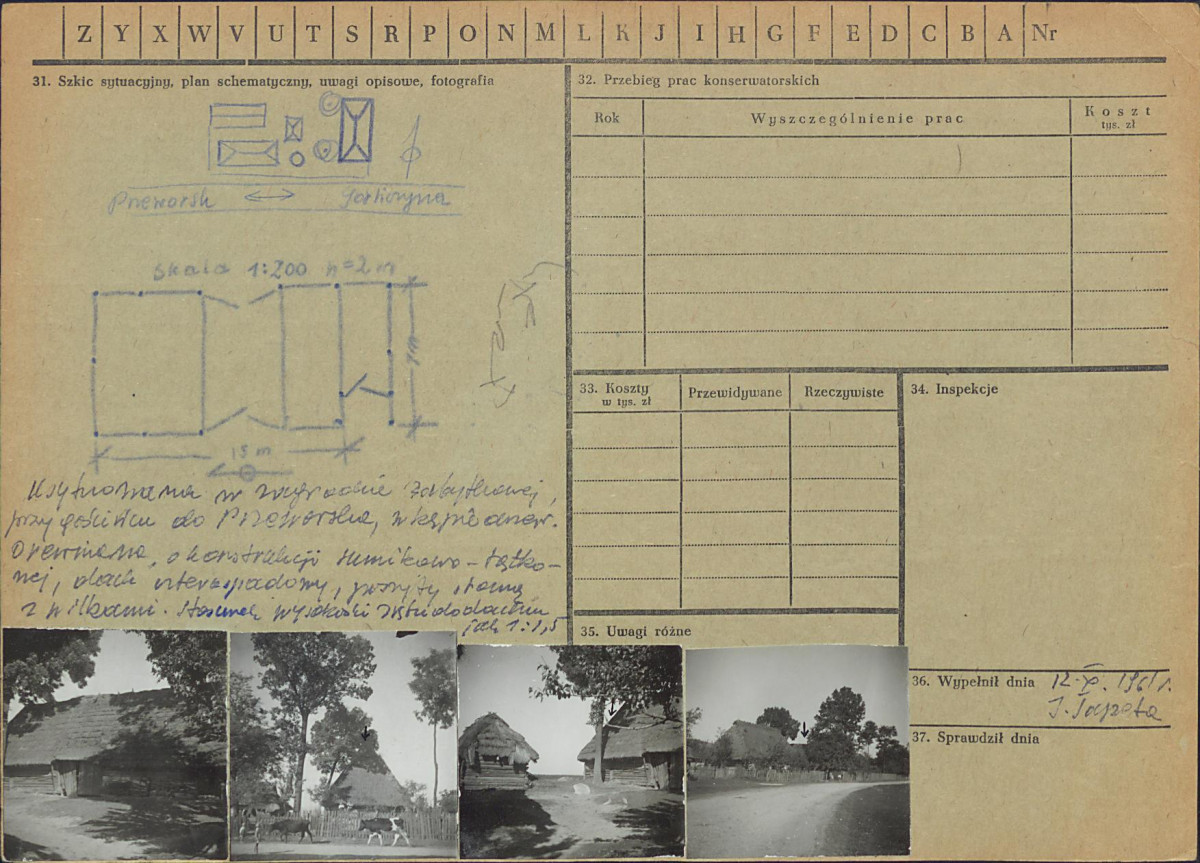 Z Y X W V U T S R P O N M L K J I H G F E D C B A Nr
31. Szkic sytuacyjny, plan schematyczny, uwagi opisowe, fotografia
Przeworsk ↔ Gorliczyna
Skala 1:200 h=2 m
7 m
15 m
Usytuowana w zagrodzie zabytkowej,
przy gościńcu do Przeworska, w kępie drzew.
Drewniana, o konstrukcji sumikowo-łątko-
wej, dach czterospadowy, poszyty słomą
z wilkami. Stosunek wysokości zrębu do dachu
jak 1:1,5
32. Przebieg prac konserwatorskich
Rok Wyszczególnienie prac Koszt
tys. zł
33. Koszty
w tys. zł
Przewidywane Rzeczywiste
34. Inspekcje
35. Uwagi różne
36. Wypełnił dnia 12.X.1961 r.
37. Sprawdził dnia